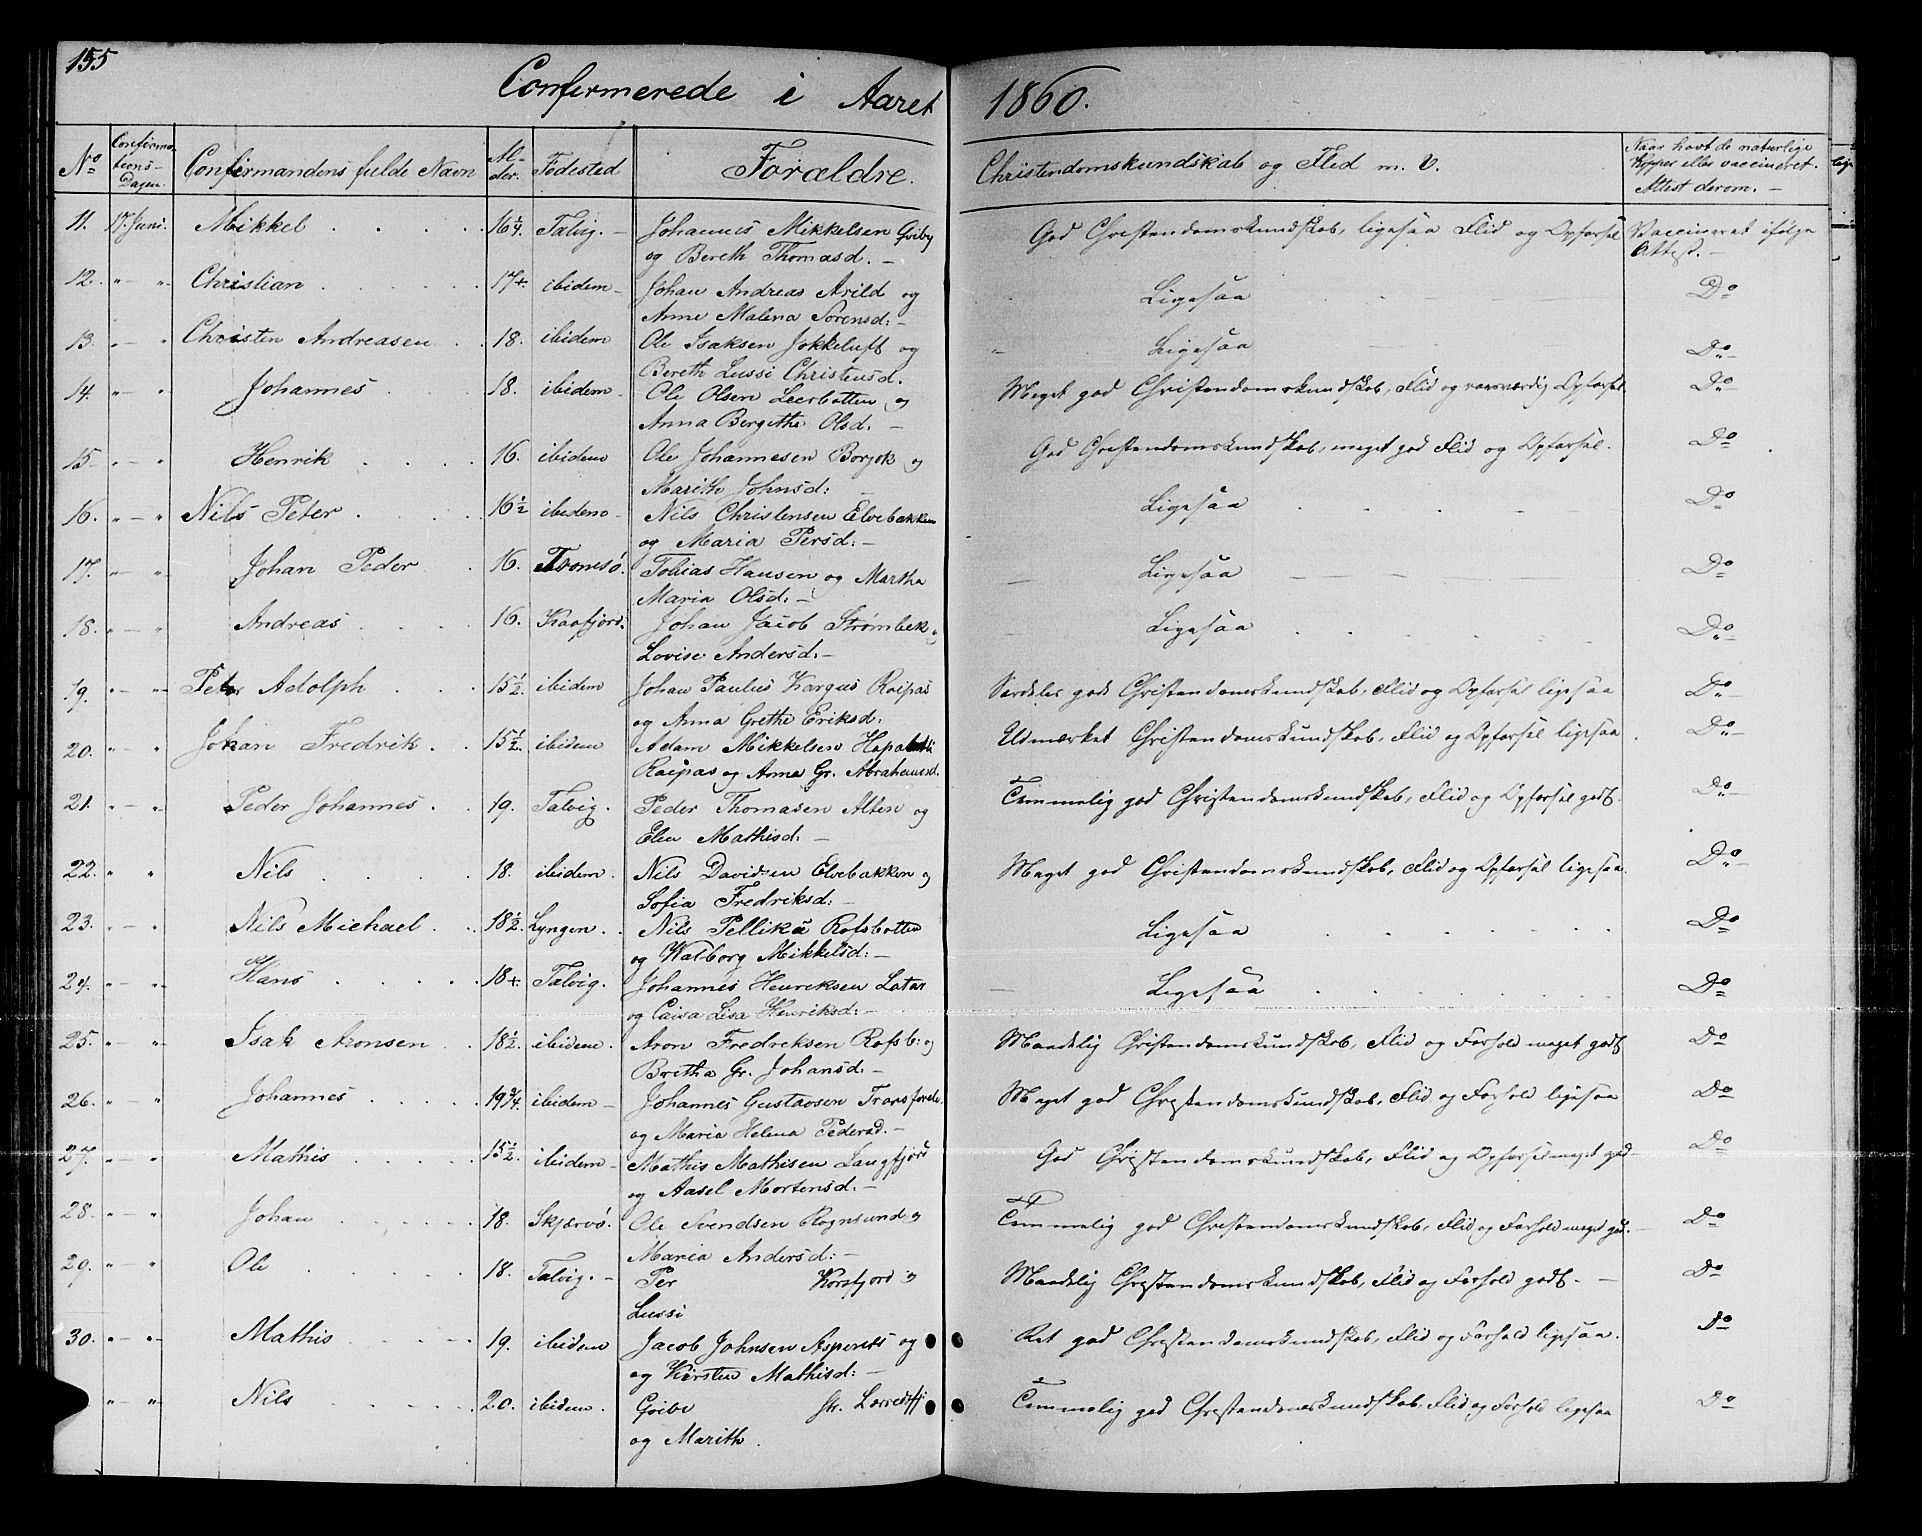 155
Confirmerede i Aaret 1860.
No Confirmations-Dagen. Confirmandens fulde Navn Alder. Fødested Forældre. Christendomskundskab og Flid m. V. Naar havt de naturlige Kopper eller vaccineret. Attest derom. —
11. 17. Juni. Mikkel 16 1/4 Talvig. — Johannes Mikkelsen God Christendomskundskab, ligesaa Flid og Opførsel Vaccineret ifølge
og Bereth Thomasd. — Attest. —
12. " — " Christian 17 ibidem — Johan Andreas Arild og Ligesaa Do
Anne Malena Sørensd: —
13. — " Christen Andreasen 18. ibidem Ole Isaksen Jokkeluft og Ligesaa Do
Bereth Lussi Christensd.
14. " — " Johannes 18. ibidem — Ole Olsen Leerbotten og Meget god Christendomskundskab, Flid og Opførsel. Do
Anna Bergithe Olsd. —
15. " — " Henrik 16. ibidem Ole Johannesen Borjok og God Christendomskundskab, meget god Flid og Opførsel. Do
Marith Johnsd:
16. " — " Nils Peter 16 1/2 ibidem — Nils Christensen Elvebakken Ligesaa Do
og Maria Persd: —
17. " — " Johan Peder 16. Tromsø. Tobias Hansen og Martha Ligesaa Do
Maria Olsd: —
18. " — " Andreas 16. Kaafjord. Johan Jacob Strømbek og Ligesaa Do
Lovise Andersd: —
19. " — " Peter Adolph 15 1/2. ibidem Johan Paulus Kargus Raipas Særdeles god Christendomskundskab, Flid og Opførsel ligesaa Do
og Anna Grethe Eriksd:
20. " — " Johan Fredrik 15 1/2. ibidem Adam Mikkelsen Udmærket Christendomskundskab, Flid og Opførsel ligesaa. Do
Raipas og Anna Gr. Abrahamsd.
21. " — " Peder Johannes 19. Talvig. Peder Thomasen Alten og Temmelig god Christendomskundskab, Flid og Opførsel godt. Do
Elen Mathisd: —
22. " " Nils 18. ibidem. Nils Davidsen Elvebakken og Meget god Christendomskundskab, Flid og Opførsel ligesaa. Do
Sofia Fredriksd: —
23. " — " Nils Michael 18 1/2 Lyngen. Nils Pellika Rafsbotten Ligesaa Do
og Walborg Mikkelsd: —
24. " — " Hans 18 Talvig. Johannes Henriksen Latar Ligesaa Do
og Caisa Lisa Henriksd: —
25. " — " Isak Aronsen 18 1/2. ibidem. Aron Fredriksen Rafsb: og Maadelig Christendomskundskab, Flid og Forhold meget godt Do
Bretha Gr. Johansd: —
26. " — " Johannes 19 3/4. ibidem — Johannes Gustavsen Meget god Christendomskundskab, Flid og Forhold ligesaa Do
og Maria Helena Pedersd. —
27. " — " Mathis 15 1/2. ibidem — Mathis Mathisen Langfjord God Christendomskundskab, Flid og Opførsel meget god Do
og Aasel Mortensd. —
28. " — " Johan 18. Skjærvø. Ole Svendsen Rognsund og Temmelig god Christendomskundskab, Flid og Forhold meget god. Do
Maria Andersd: —
29. " — " Ole 18. Talvig. — Per Korsfjord og Maadelig Christendomskundskab, Flid og Forhold godt. — Do
Lussi
30. " — " Mathis 19. ibidem Jacob Johnsen Aspenæs og Ret god Christendomskundskab, Flid og Forhold ligesaa. Do
og Kirsten Mathisd: —
" — " Nils 20. ibidem. Temmelig god Christendomskundskab, Flid og Forhold ligesaa Do
og Marith.